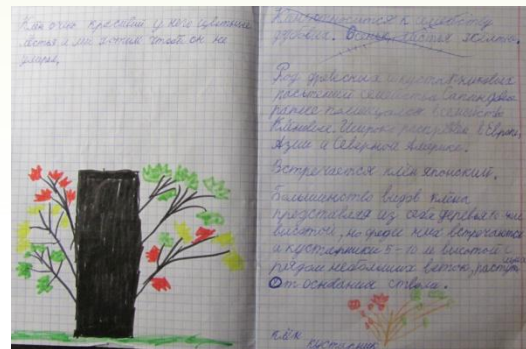 Клён очень красивый у него цветные
листья и мы хотим чтоб он не
умирал.
относится к семейству
Род древесных и кустарниковых
растений семейства Сапиндовые
ранее помещался в семейство
Кленовые. Широко распр в Европе
Азии и Северной Америке.
Встречается клён японский.
Большинство видов клёна
представляя из себя деревья 10-
высотой, но среди них встречаются
и кустарники 5-10 м высотой с
рядом небольших веток, растущих
от основания ствола.
клён
кустарник